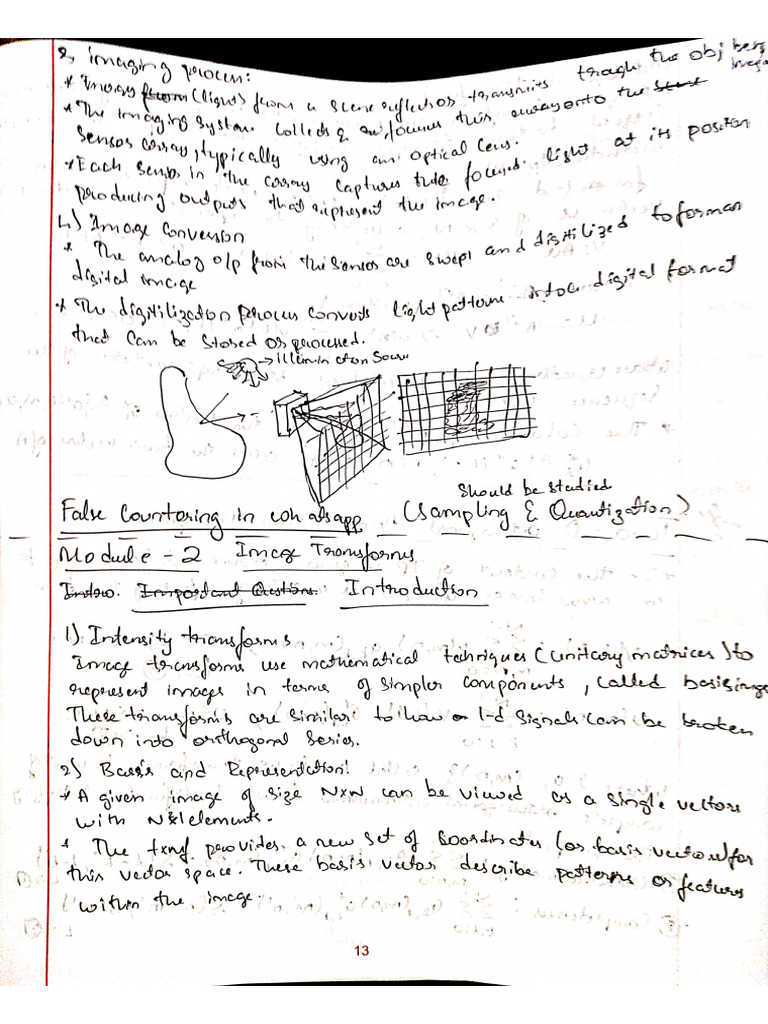 imaging process:
* Energy from (light) from a scene reflects or transmits through the obj being
* The imaging system collects & focuses this energy onto the
Sensor array, typically using an optical lens.
* Each Sensor in the array captures the focused light at its position
producing outputs that represent the image.
4) Image Conversion
* The analog o/p from the sensors are swept and digitilized to form an
digital image
* The digitilization process converts light pattern into a digital format
that can be stored or processed.
→ Illumination Source
Should be studied
False Countoring in whatsapp (Sampling & Quantization)
Module - 2 Image Transforms
Intro. Important Questions. Introduction
1) Intensity transforms.
Image transforms use mathematical tehniques (unitary matrices) to
represent images in terms of simpler components, called basis imgs
These transforms are similar to how 1-d signals can be broken
down into orthogonal series.
2) Basis and Representation:
* A given image of size NxN can be viewed as a single vectors
with elements.
* The txnf provides a new set of coordinates (or basis vectors) for
this vector space. These basis vector describe patterns or features
within the image.
13